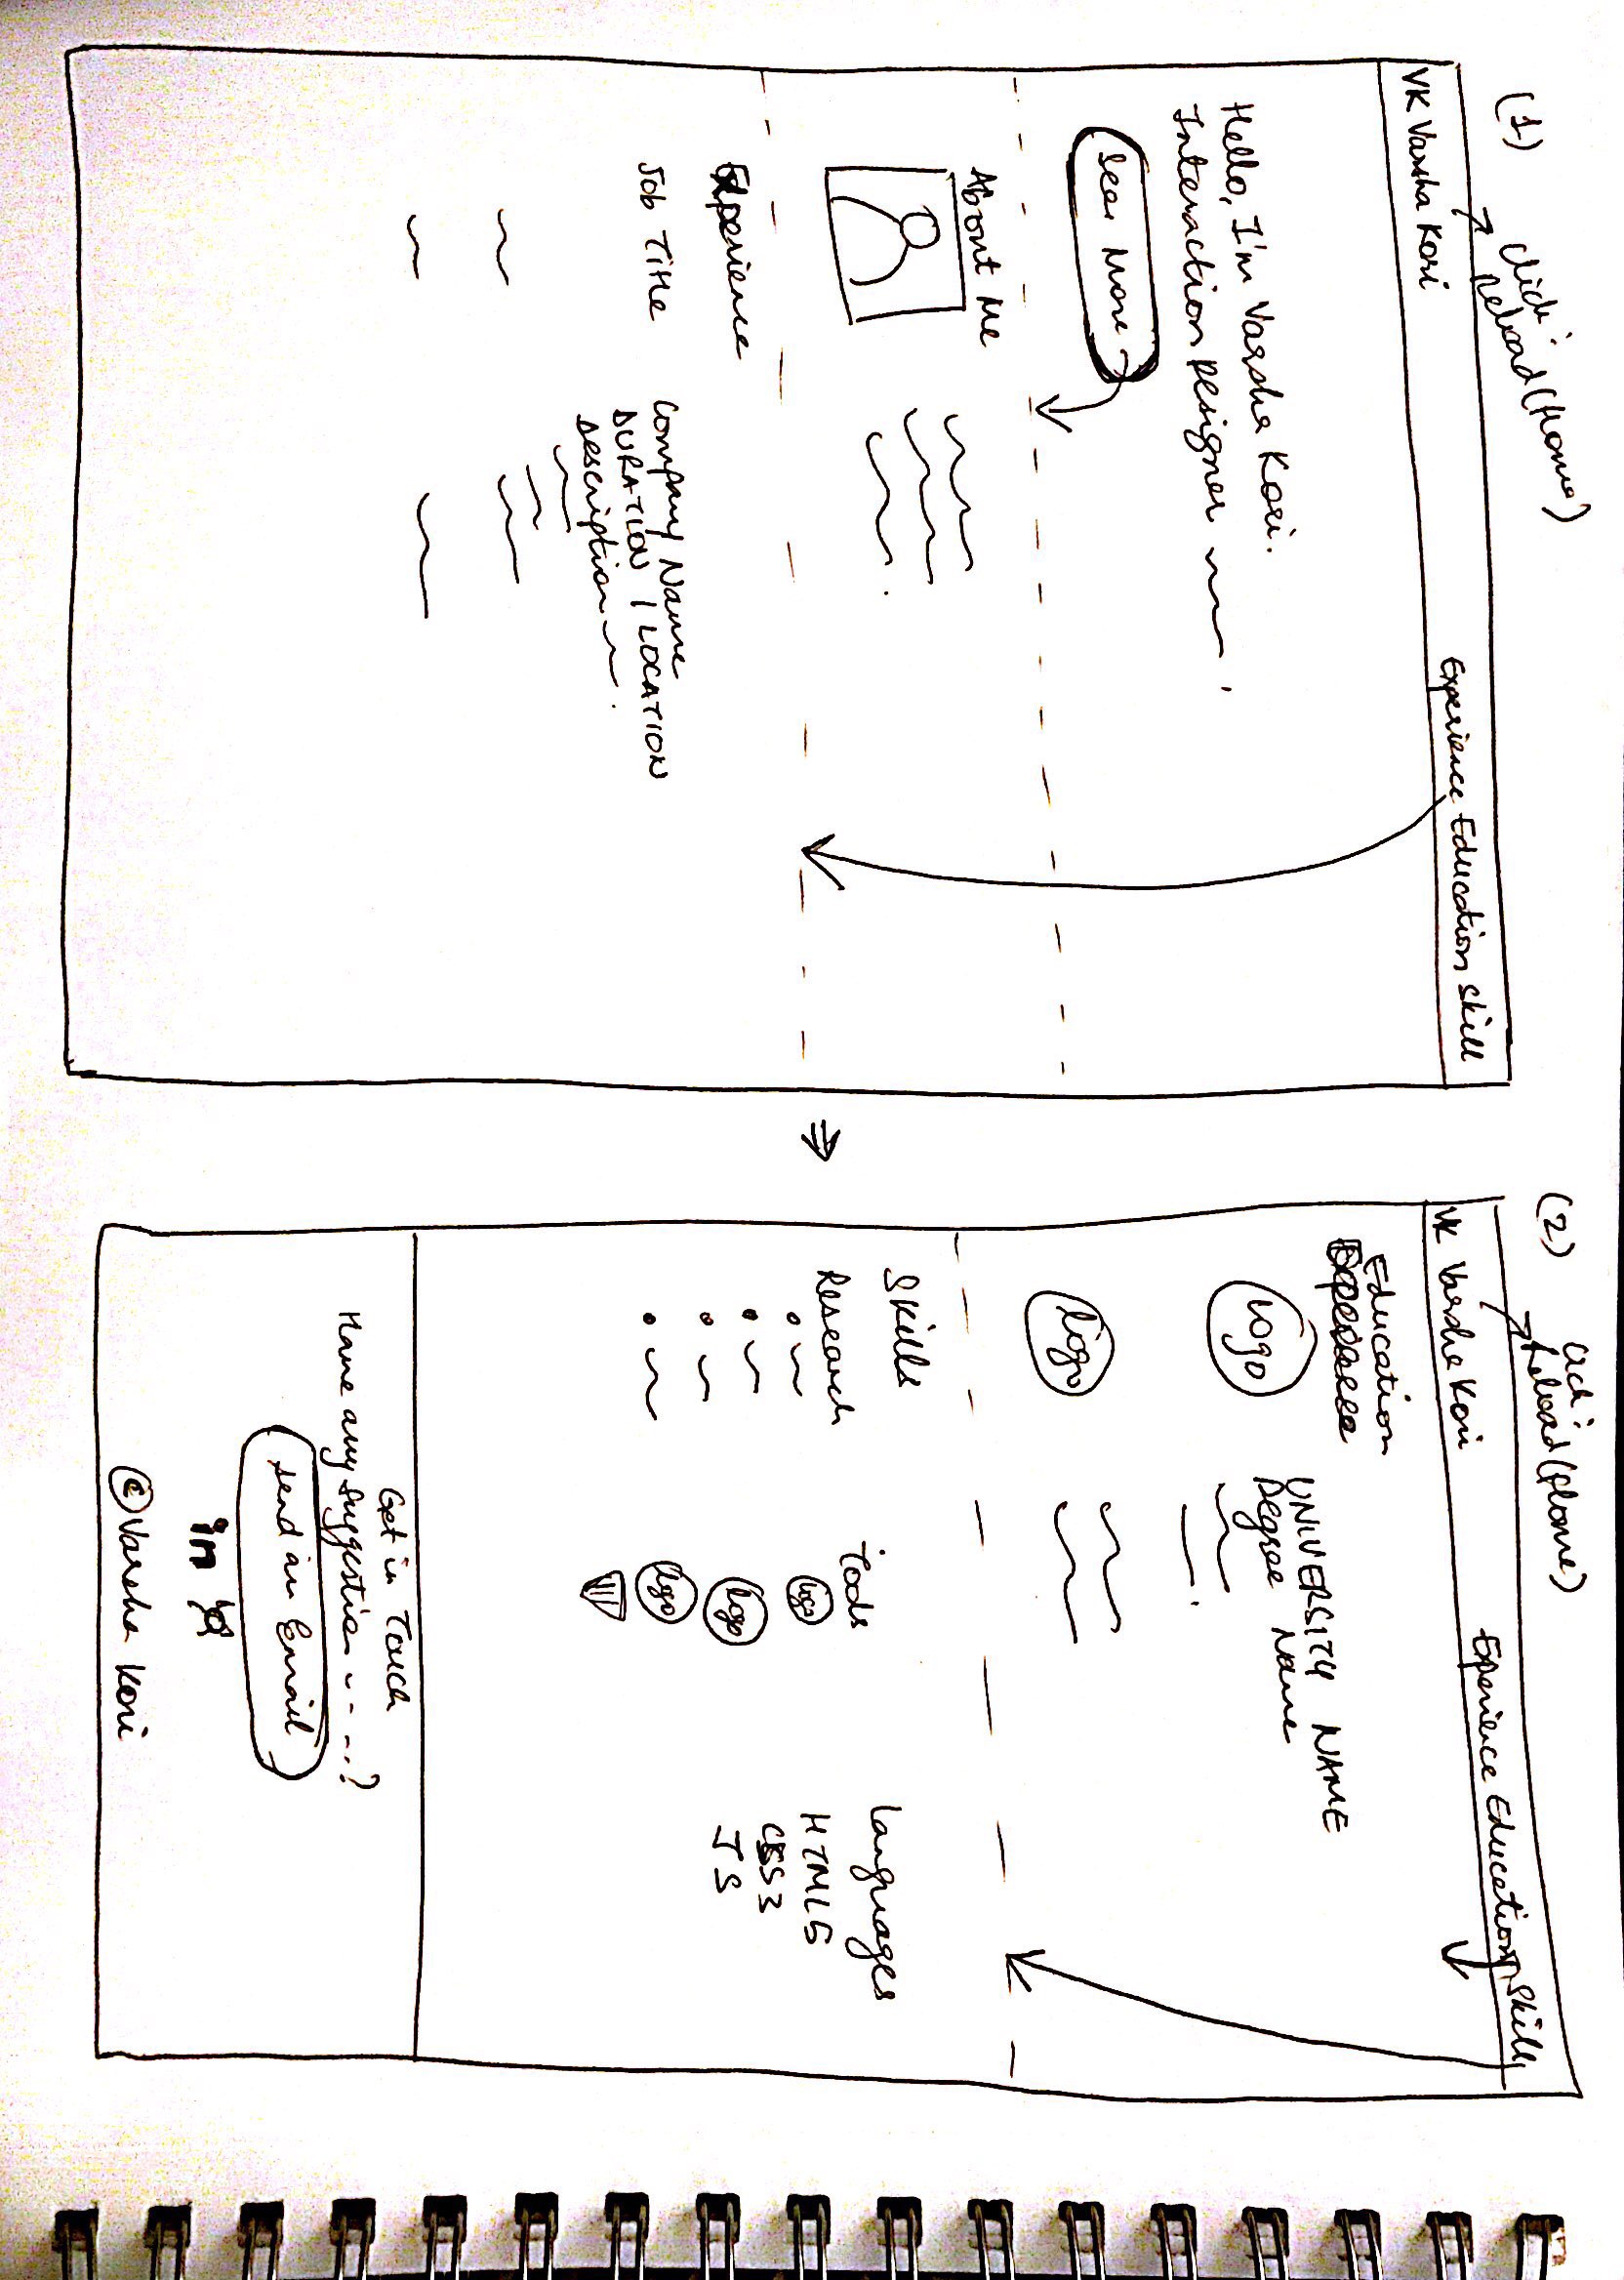 (1)
click:
reload (Home)
VK Varsha Kori
Experience Education Skill
Hello, I'm Varsha Kori.
Interaction Designer
See More
About Me
Experience
Job Title
Company Name
DURATION | LOCATION
Description
(2)
click:
reload (Home)
VK Varsha Kori
Experience Education Skill
Education
Logo
UNIVERSITY NAME
Degree Name
Logo
Skills
Research
Tools
Languages
Logo
HTML5
Logo
CSS3
Logo
JS
Get in Touch
Have any suggestion ---?
send an Email
in
© Varsha Kori